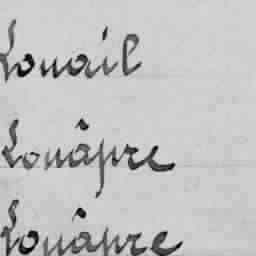 Louail
Louâpre
Louâpre